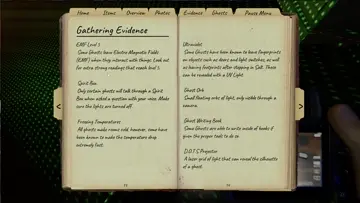 Home Items Overview Photos Evidence Ghosts Pause Menu
Gathering Evidence
EMF Level 5
Some Ghosts have Electro Magnetic Fields
(EMF) when they interact with things. Look out
for extra strong readings that reach level 5.
Spirit Box
Only certain ghosts will talk through a Spirit
Box when asked a question with your voice. Make
sure the lights are turned off.
Freezing Temperatures
All ghosts make rooms cold, however, some have
been known to make the temperature drop
extremely fast.
Ultraviolet
Some Ghosts have been known to leave fingerprints
on objects such as doors and light switches, as well
as leaving footprints after stepping in Salt. These
can be revealed with a UV Light.
Ghost Orb
Small floating orbs of light, only visible through a
camera.
Ghost Writing Book
Some Ghosts are able to write inside of books if
given the proper tools to do so.
D.O.T.S Projector
A laser grid of light that can reveal the silhouette
of a ghost.